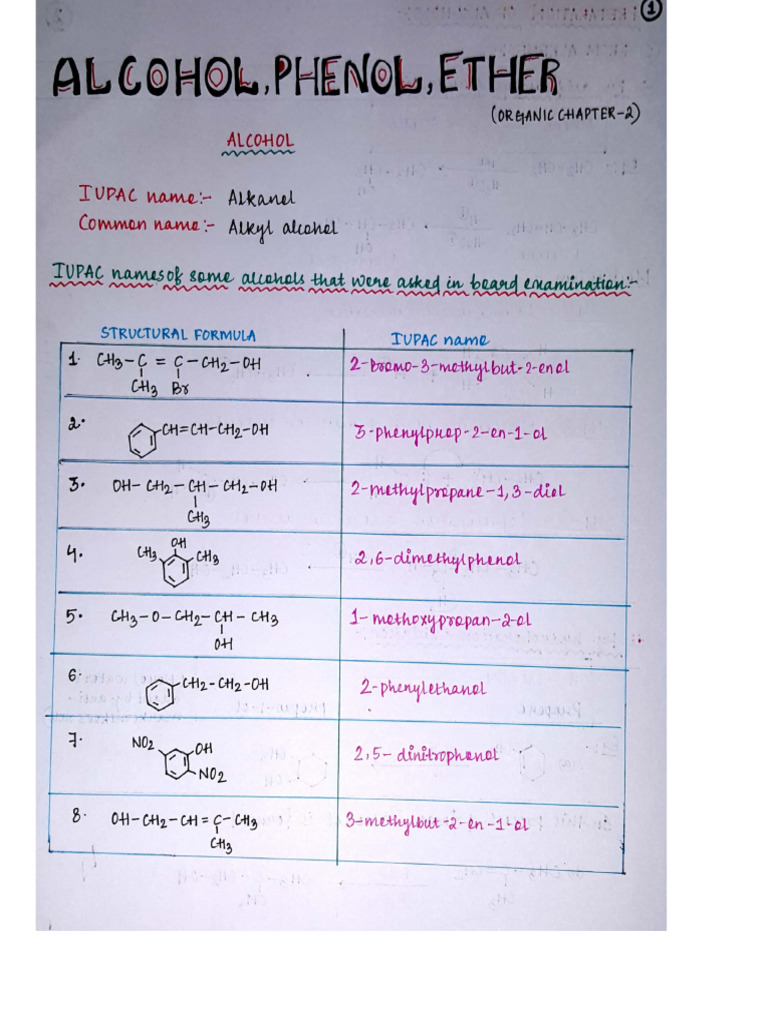 1
ALCOHOL, PHENOL, ETHER
(ORGANIC CHAPTER-2)
ALCOHOL
IUPAC name:- Alkanol
Common name:- Alkyl alcohol
IUPAC names of some alcohols that were asked in board examination:-
STRUCTURAL FORMULA IUPAC name
1. CH3-C = C-CH2-OH 2-bromo-3-methylbut-2-enol
CH3 Br
2. CH=CH-CH2-OH 3-phenylprop-2-en-1-ol
3. OH-CH2-CH-CH2-OH 2-methylpropane-1,3-diol
CH3
4. CH3 OH CH3 2,6-dimethylphenol
5. CH3-O-CH2-CH-CH3 1-methoxypropan-2-ol
OH
6. CH2-CH2-OH 2-phenylethanol
7. NO2 OH 2,5-dinitrophenol
NO2
8. OH-CH2-CH=C-CH3 3-methylbut-2-en-1-ol
CH3